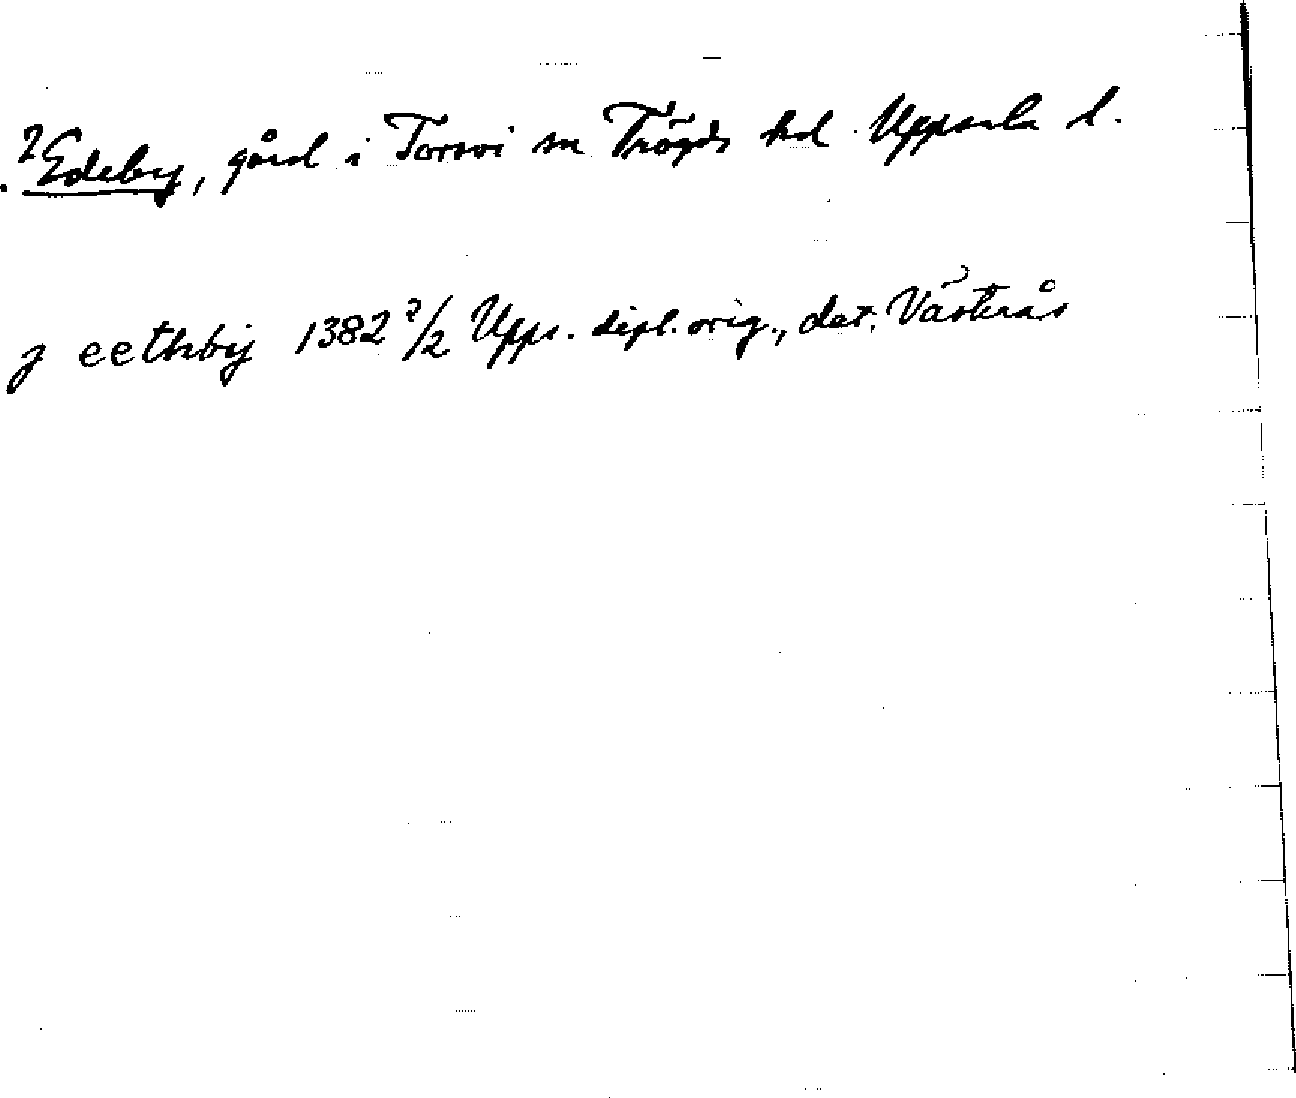 ?Edeby, gård i Torsvi sn Trögds hd Uppsala l.
j eethby 1382 2/2 Upps. dipl. orig., dat. Västerås